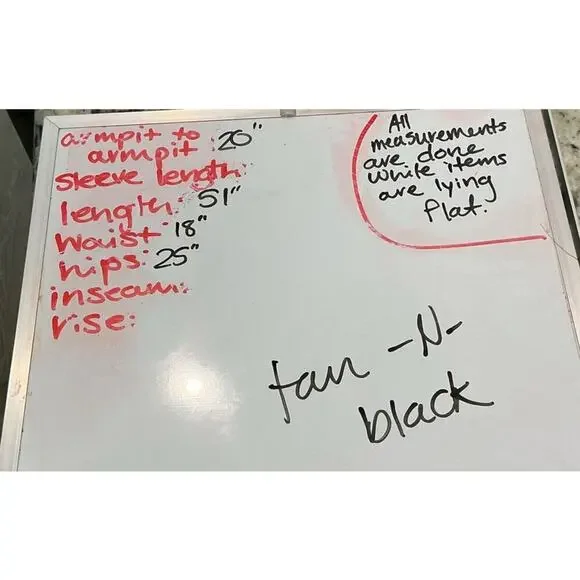 armpit to
armpit : 20"
sleeve length:
length: 51"
waist: 18"
hips: 25"
inseam:
rise:
All
measurements
are done
while items
are lying
flat.
tan -N-
black